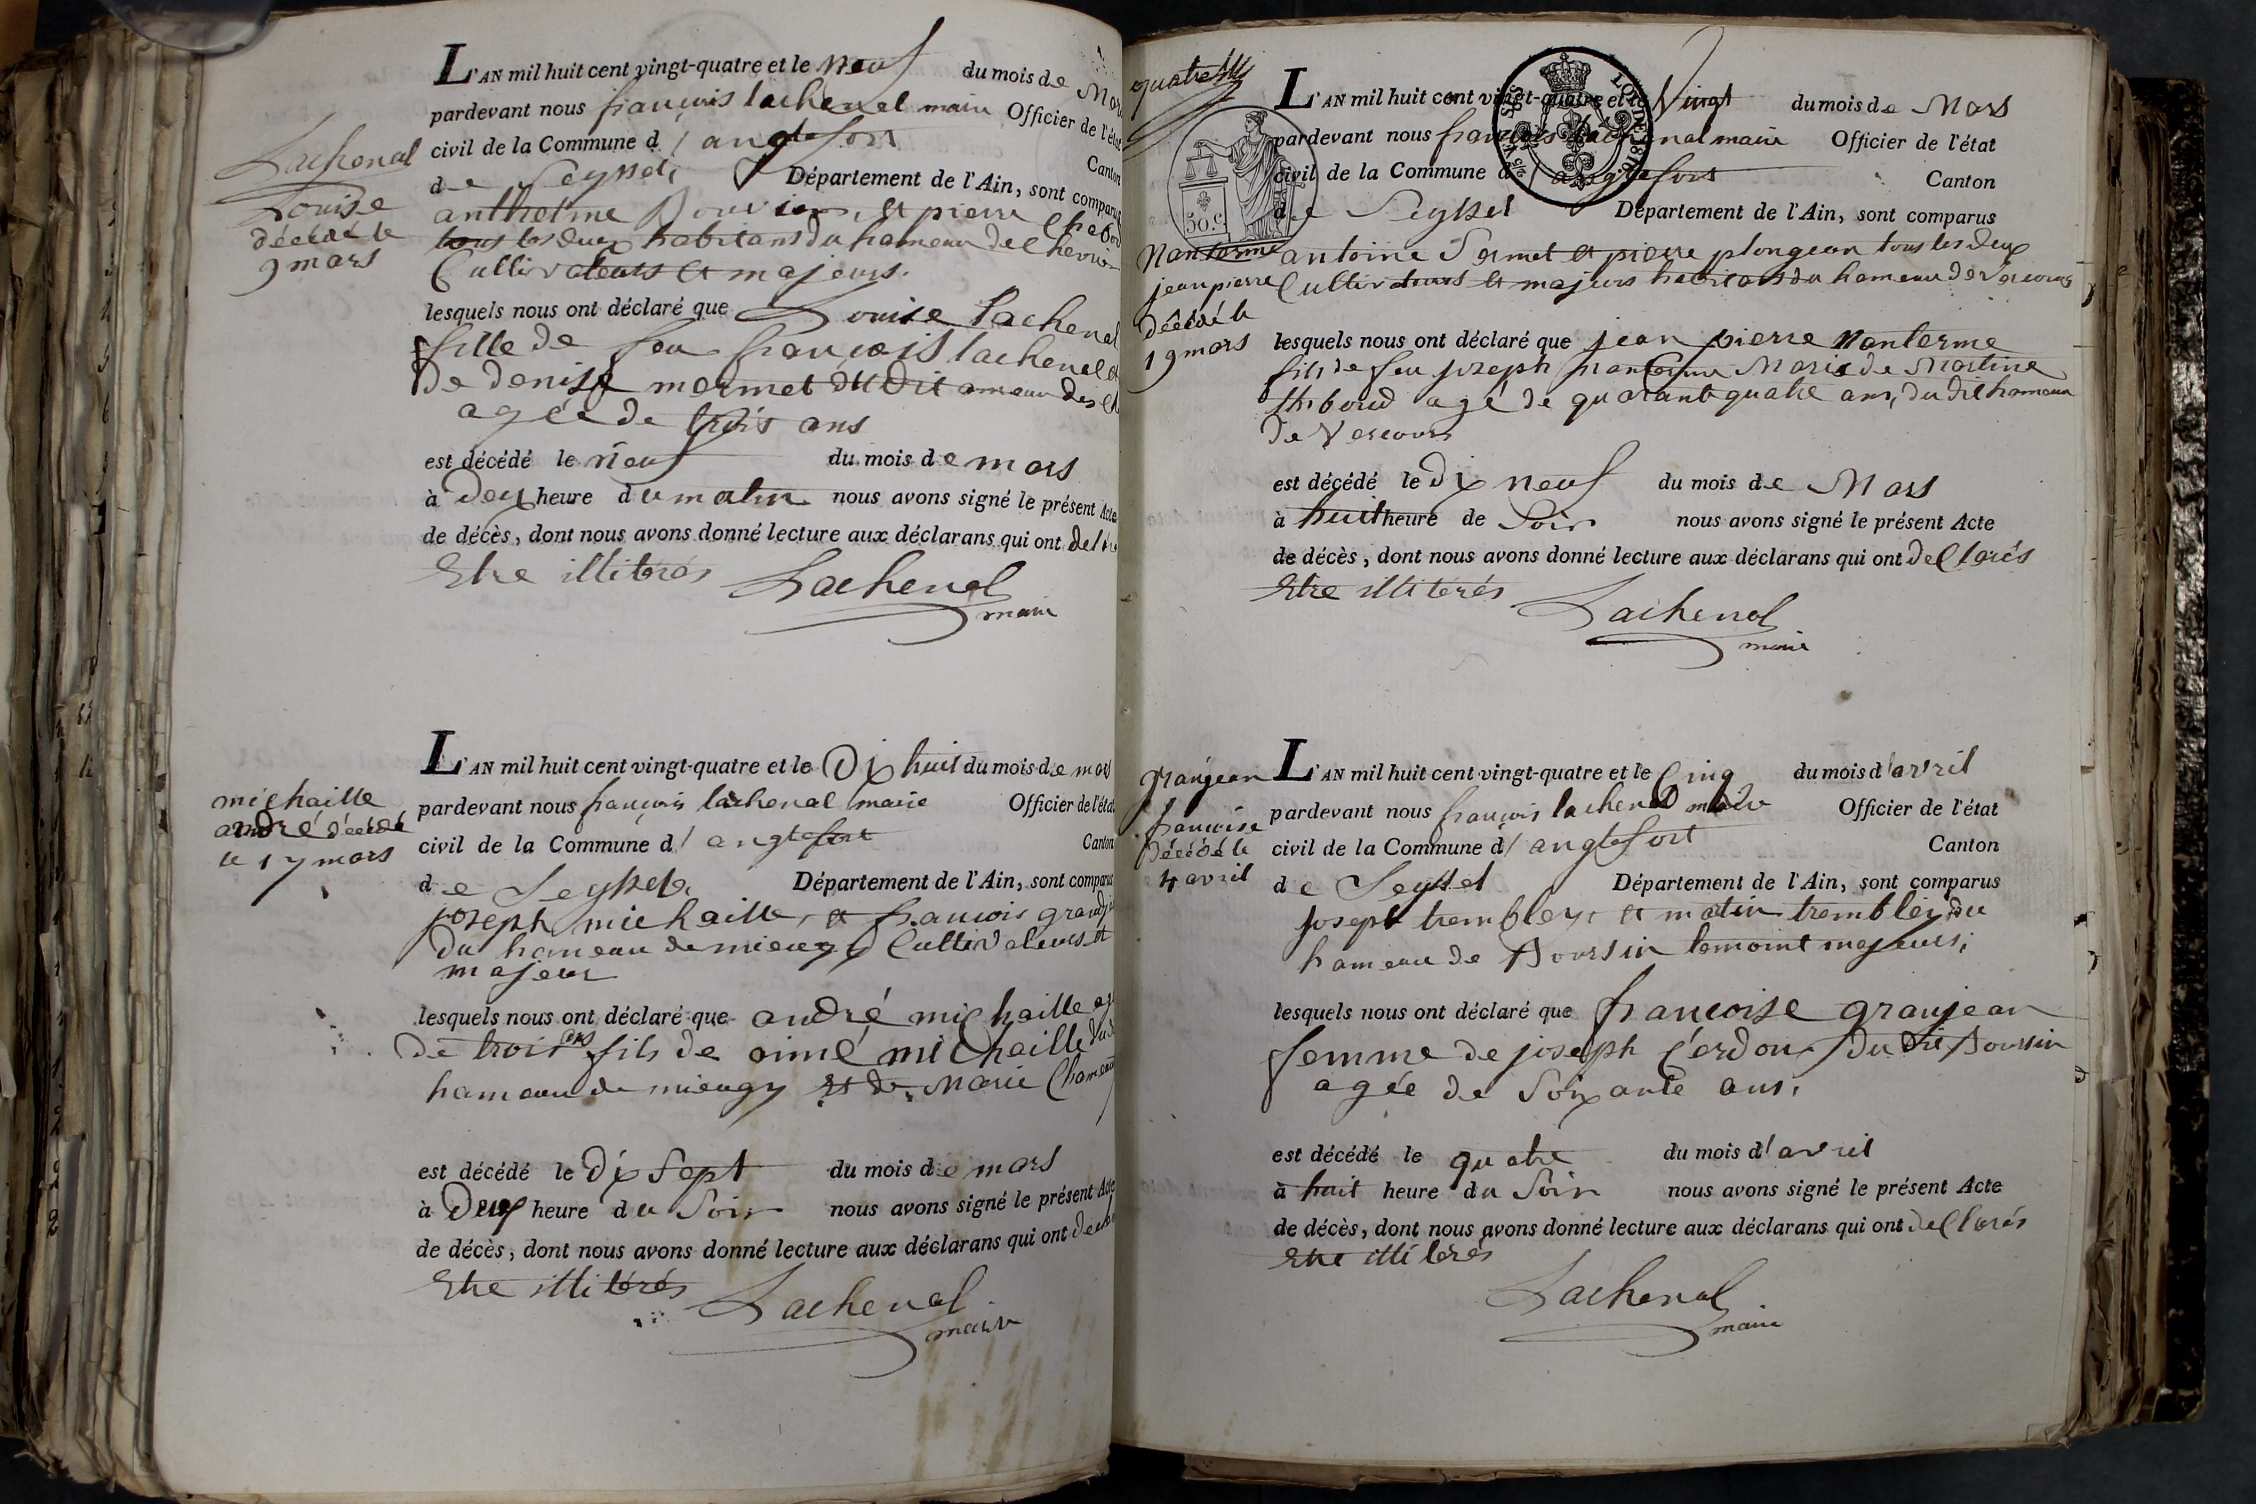 L'AN mil huit cent vingt-quatre et le neuf du mois de Mars
pardevant nous françois lachenal maire Officier de l'état
civil de la Commune d'anglefort Canton
de Seyssel, Département de l'Ain, sont comparus
anthelme Bouvier, et pierre
tous les deux habitans du hameau de
Cultivateurs et majeurs.
lesquels nous ont déclaré que Louise Lachenal
fille de feu françois lachenal et
de denise mermet du dit ameau des
agée de trois ans
est décédé le neuf du mois de mars
à Deux heure du matin nous avons signé le présent Acte
de décès, dont nous avons donné lecture aux déclarans qui ont
Etre illiterés Lachenal
maire
Lachenal
Louise
décédé le
9 mars
L'AN mil huit cent vingt-quatre et le Dix huit du mois de mars
pardevant nous françois lachenal maire Officier de l'état
civil de la Commune d'anglefort Canton
de Seyssel, Département de l'Ain, sont comparus
joseph michaille, et francois
du hameau de mieugy Cultivateurs et
majeur
lesquels nous ont déclaré que andré michaille
de trois ans fils de aimé michaille
hameau de mieugy et de Marie
est décédé le Dix Sept du mois de mars
à Deux heure du Soir nous avons signé le présent Acte
de décès, dont nous avons donné lecture aux déclarans qui ont
Etre illiterés
Lachenal
maire
michaille
andré décédé
le 17 mars
quatre
L'AN mil huit cent vingt-quatre et le Vingt du mois de Mars
pardevant nous françois lachenal maire Officier de l'état
civil de la Commune d'anglefort Canton
de Seyssel Département de l'Ain, sont comparus
antoine Sermet et pierre plongean tous les deux
Cultivateurs et majeurs habitans du hameau de Vercours
lesquels nous ont déclaré que jean pierre Nanterme
fils de feu joseph nanterme Marié de Martine
agé de quarante quatre ans, du dit hameau
de Vercours
est décédé le Dix neuf du mois de Mars
à huit heure de Soir nous avons signé le présent Acte
de décès, dont nous avons donné lecture aux déclarans qui ont declarés
Etre illiterés
Lachenal
maire
Nanterme
jean pierre
décédé le
19 mars
50 c.
LOI DE 1816
L'AN mil huit cent vingt-quatre et le Cinq du mois d'avril
pardevant nous françois lachenal maire Officier de l'état
civil de la Commune d'anglefort Canton
de Seyssel Département de l'Ain, sont comparus
joseph trembley, et matin trembley du
hameau de Boursin temoint majeurs;
lesquels nous ont déclaré que françoise granjean
femme de joseph Cerdon, du dit Boursin
agée de Soixante ans.
est décédé le quatre du mois d'avril
à huit heure du Soir nous avons signé le présent Acte
de décès, dont nous avons donné lecture aux déclarans qui ont declarés
Etre illiterés
Lachenal
maire
granjean
françoise
décédé le
4 avril